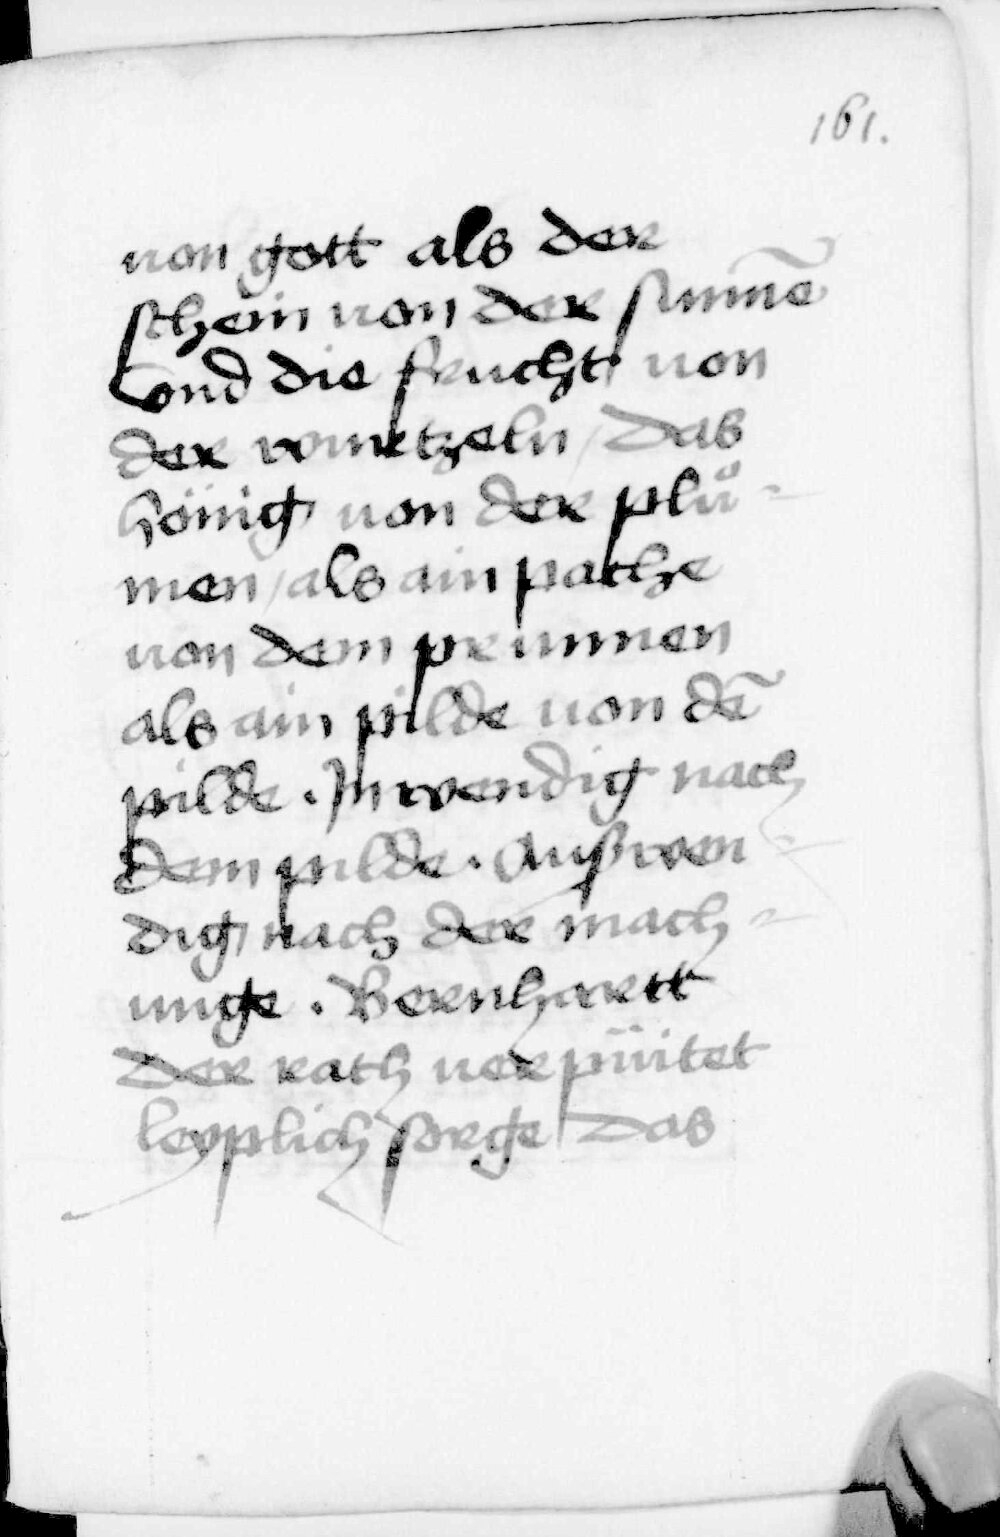 161.
von gott als der
schein von der sunnē
vnd die frucht von
der wurtzeln / das
hönig von der plů-
men / als ain pache
von dem prunnen
als ain pilde von dē
pilde . Inwendig nach
dem pilde . Auſwen-
dig nach der mach-
unge . Bernhartt
der rath verpüitet
leyplich sorge das